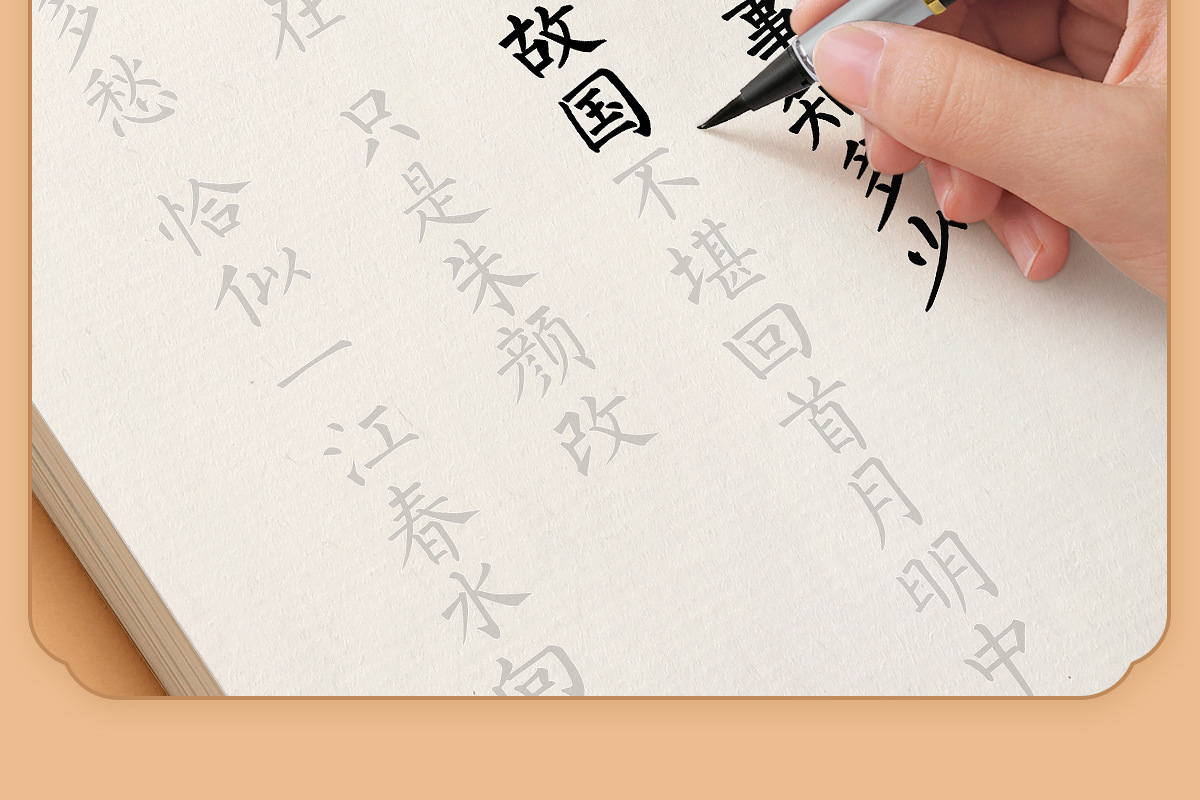 事知多少
故国不堪回首月明中
在 只是朱颜改
多愁 恰似一江春水向